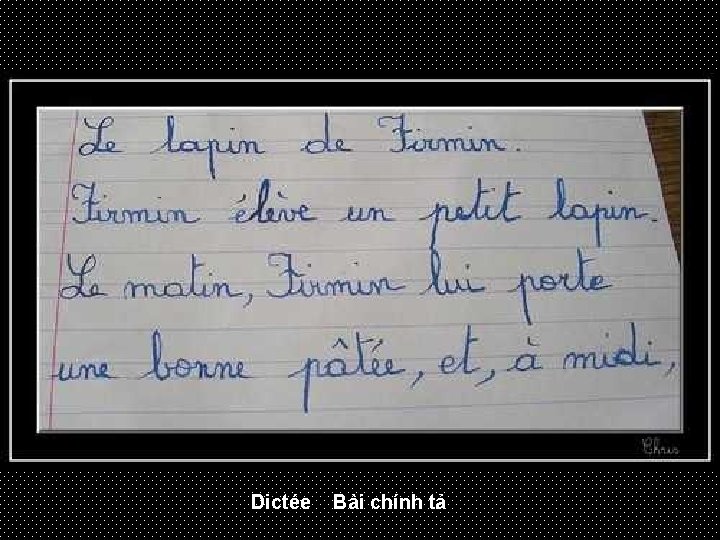 Le lapin de Firmin.
Firmin élève un petit lapin.
Le matin, Firmin lui porte
une bonne pâtée, et, à midi,
Chris
Dictée Bài chính tả